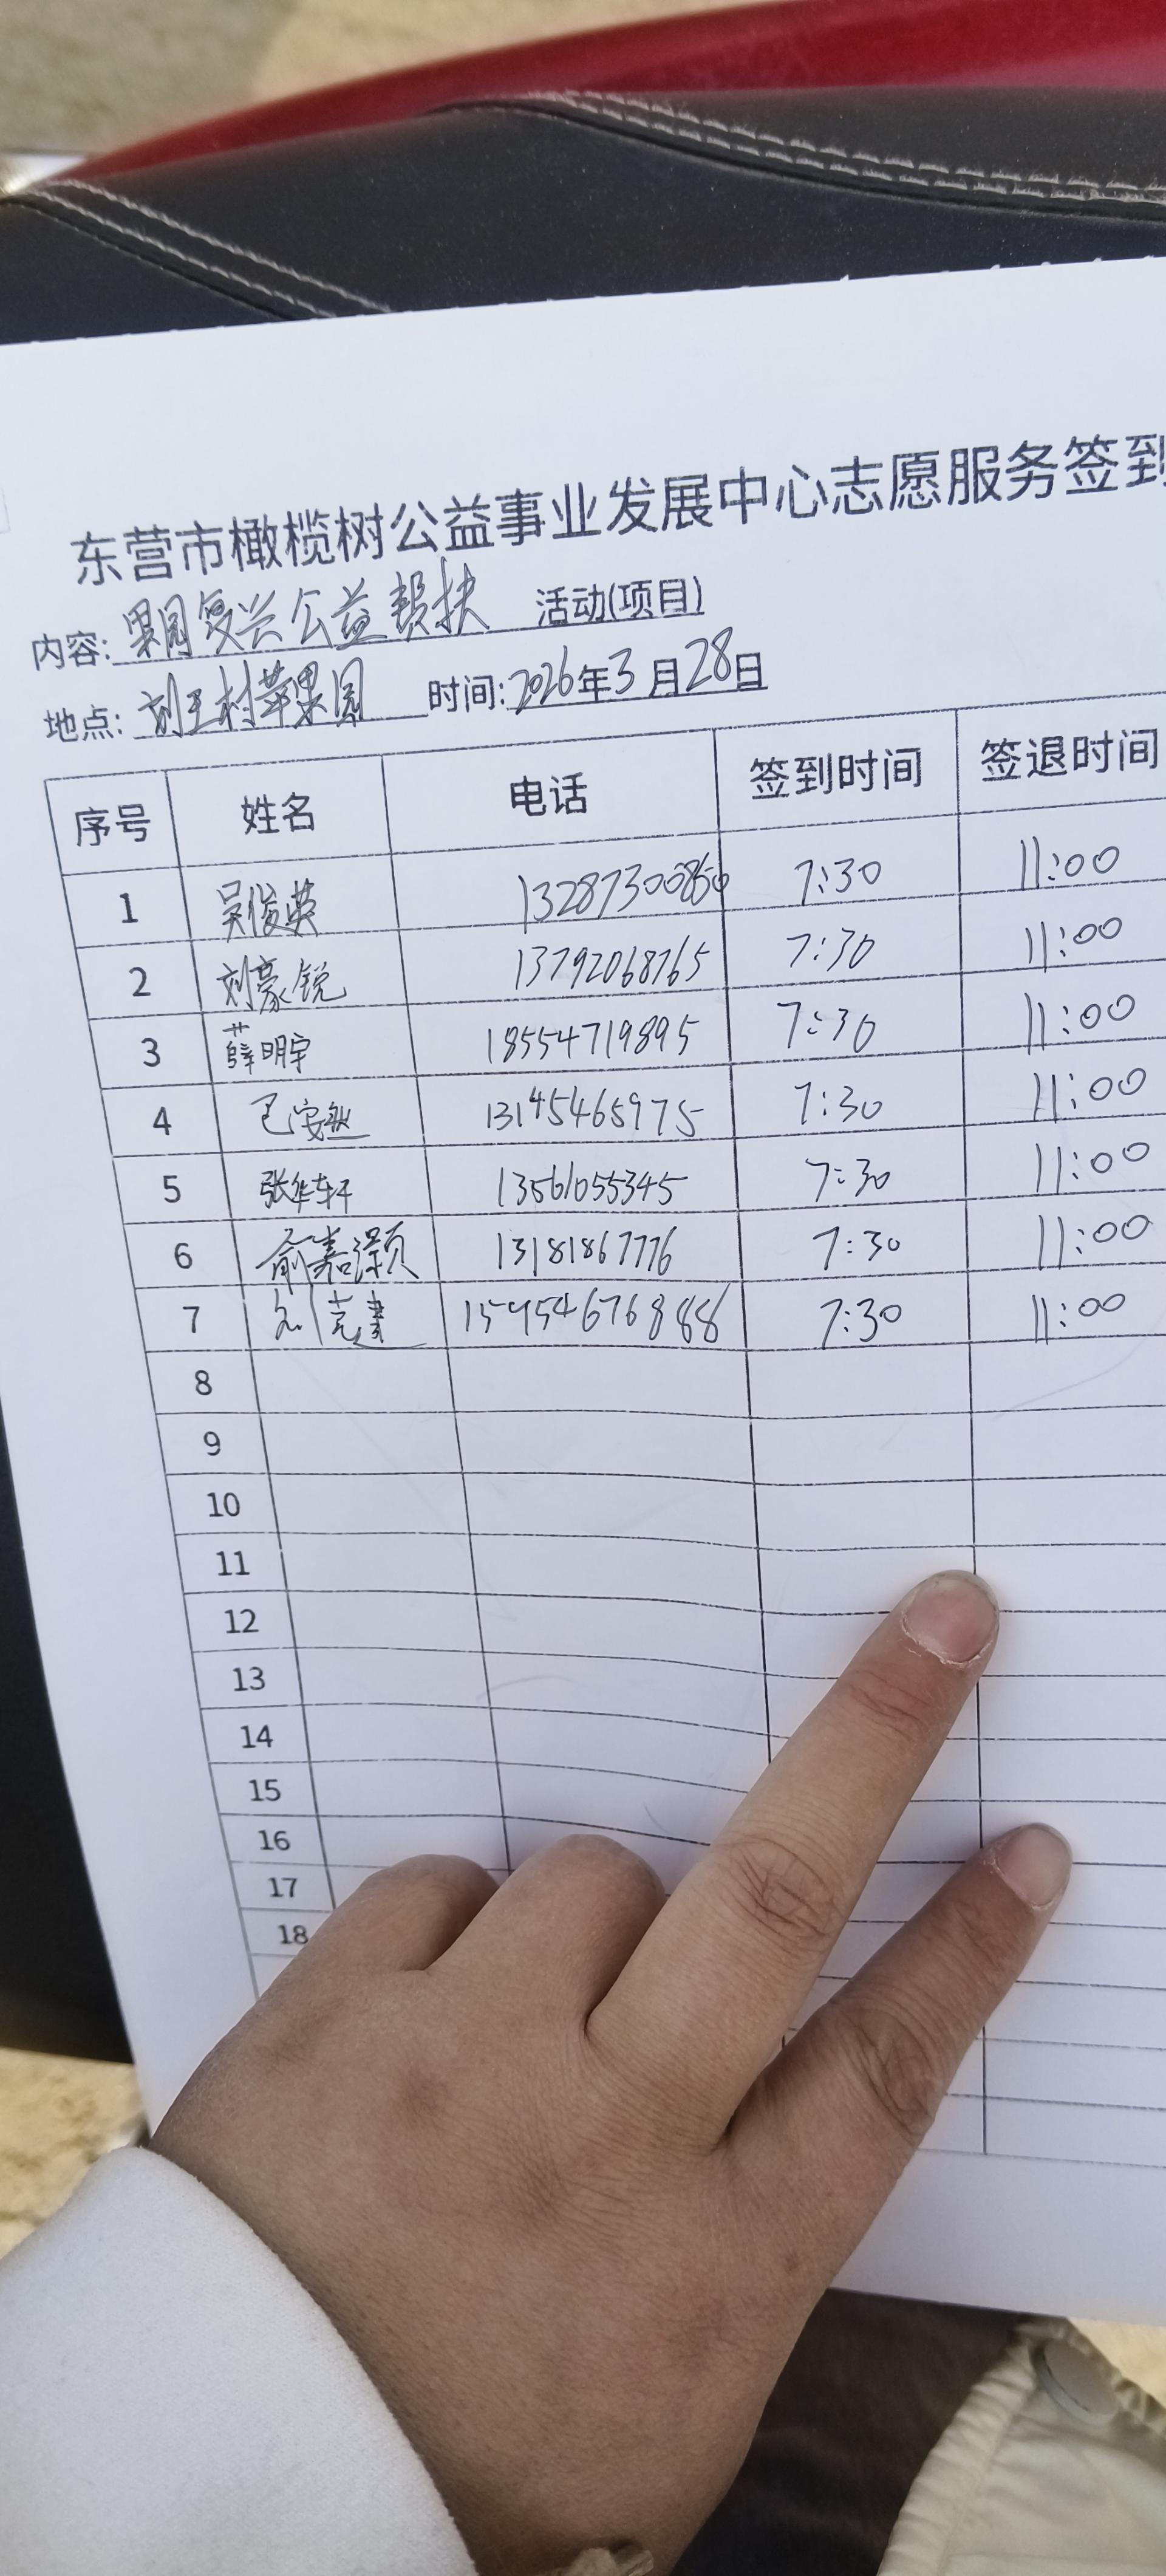 东营市橄榄树公益事业发展中心志愿服务签到
内容: 果园复兴公益帮扶 活动(项目)
地点: 刘王村苹果园 时间: 2026年3月28日
序号 姓名 电话 签到时间 签退时间
1 吴俊英 13287300850 7:30 11:00
2 刘豪锐 13792068765 7:30 11:00
3 薛明宇 18554719895 7:30 11:00
4 13145465975 7:30 11:00
5 张华轩 13561055345 7:30 11:00
6 俞嘉灏 13181867776 7:30 11:00
7 15954676888 7:30 11:00
8
9
10
11
12
13
14
15
16
17
18